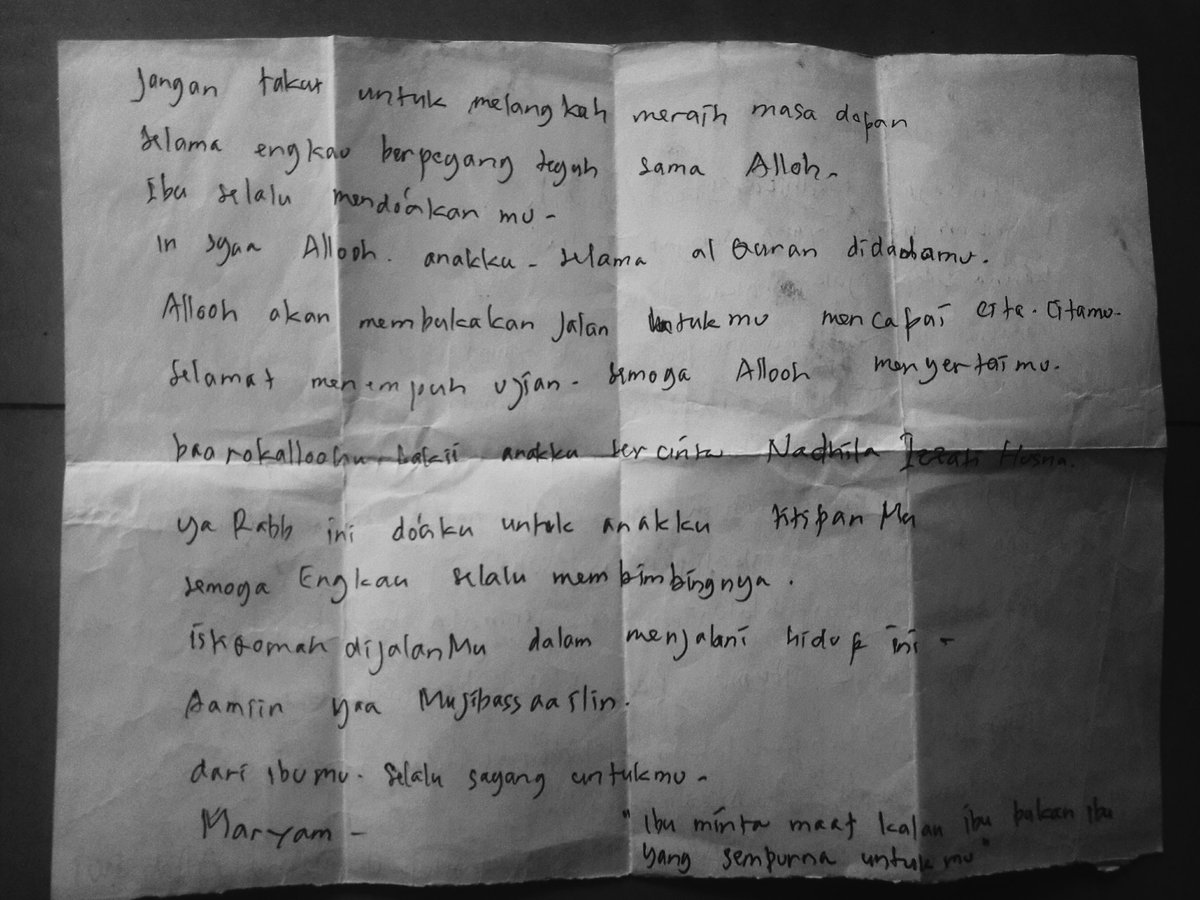 Jangan takut untuk melangkah meraih masa depan
selama engkau berpegang teguh sama Alloh.
Ibu selalu mendo'akan mu -
In syaa Allooh. anakku - selama al Quran didadamu.
Allooh akan membukakan jalan untukmu mencapai cita-citamu.
selamat menempuh ujian - semoga Allooh menyertaimu.
baarokalloohu fiikii anakku tercinta Nadhila Izzati Husna.
ya Rabb ini do'aku untuk anakku titipan Mu
semoga Engkau selalu membimbingnya.
iskoomah dijalanMu dalam menjalani hidup ini -
Aamiin yaa Mujibassaailin.
dari ibumu. selalu sayang untukmu -
Maryam -
"Ibu minta maaf kalau ibu bukan ibu
yang sempurna untukmu"